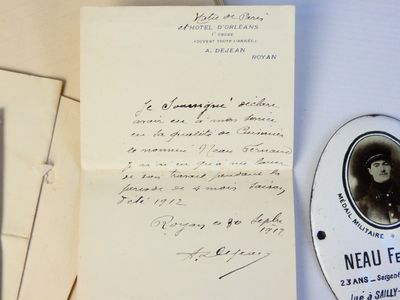 Hotel de Paris
et HOTEL D'ORLÉANS
1er ORDRE
(OUVERT TOUTE L'ANNÉE)
A. DEJEAN
ROYAN
Je Soussigné déclare
avoir eu à mon service
en la qualité de Cuisinier
le nommé Neau Fernand
Je n'ai eu qu'à me louer
de son travail pendant la
période de 4 mois Saison
d'été 1912
Royan le 30 Septbre
1912
A. Dejean
MÉDAIL MILITAIRE
NEAU Fe
23 ANS - Sergent
tué à SAILLY-